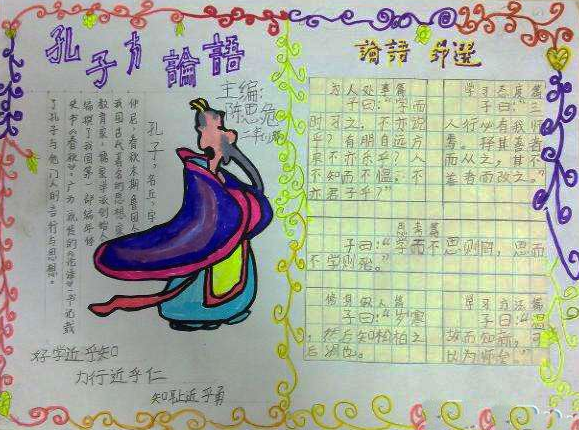 孔子与論語
主编:
陈思兔
二年
孔子,名丘,字
仲尼,春秋末期鲁国人
我国古代著名的思想家
教育家,儒家学派创始人
编撰了我国第一部编年体
史书《春秋》。广为流传的《论语》一书记载
了孔子与他门人的言行与思想。
好学近乎知
力行近乎仁
知耻近乎勇
論語 节选
为人处事篇
子曰:“学而
时习之,不亦说
乎?有朋自远方
来不亦乐乎?人
不知而不愠,不
亦君子乎?”
学习态度篇
子曰:“三
人行必有我师
焉,择其善者
而从之,其不
善者而改之。”
思考篇
子曰:“学而不思则罔,思而
不学则殆。”
修身做人篇
子曰:“岁寒
,然后知松柏之
后凋也。
学习方法篇
子曰:“温
故而知新,可
以为师矣。”